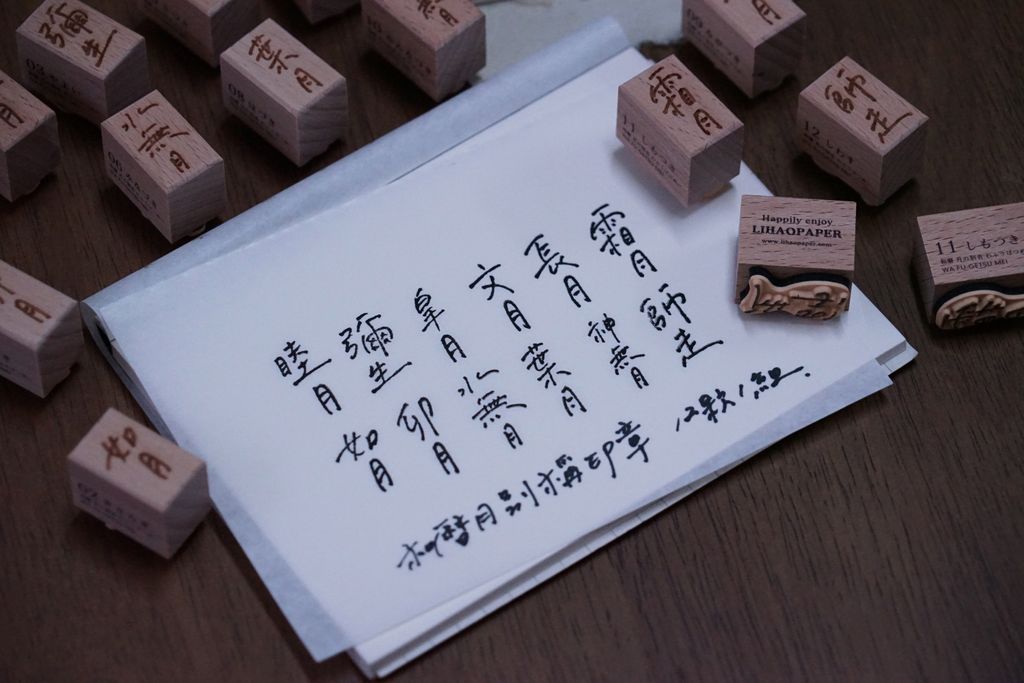 彌生
葉月
08 はづき
水無月
霜月
11 しもつき
師走
12 しわす
Happily enjoy
LIHAOPAPER
www.lihaopaper.com
11 しもつき
WA FU GETSU MEI
如月
睦月 彌生 皐月 文月 長月 霜月
如月 卯月 水無月 葉月 神無月 師走
和暦月別稱印章 12款1組.